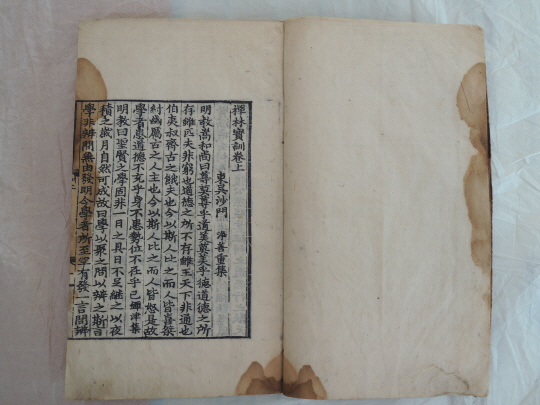 禪林寶訓卷上
東吳沙門 淨善重集
明教嵩和尚曰尊莫尊乎道美莫美乎德道德之所
存雖匹夫非窮也道德之所不存雖王天下非通也
伯夷叔齊古之餓夫也今以斯人比之而人皆喜桀
紂幽厲古之人主也今以斯人比之而人皆怒是故
學者患道德不充乎身不患勢位不在乎己 鐔津集
明教曰聖賢之學固非一日之具日不足繼之以夜
積之歲月自然可成故曰學以聚之問以辨之斯言
學非辨問無由發明今學者所至罕有發一言問辨